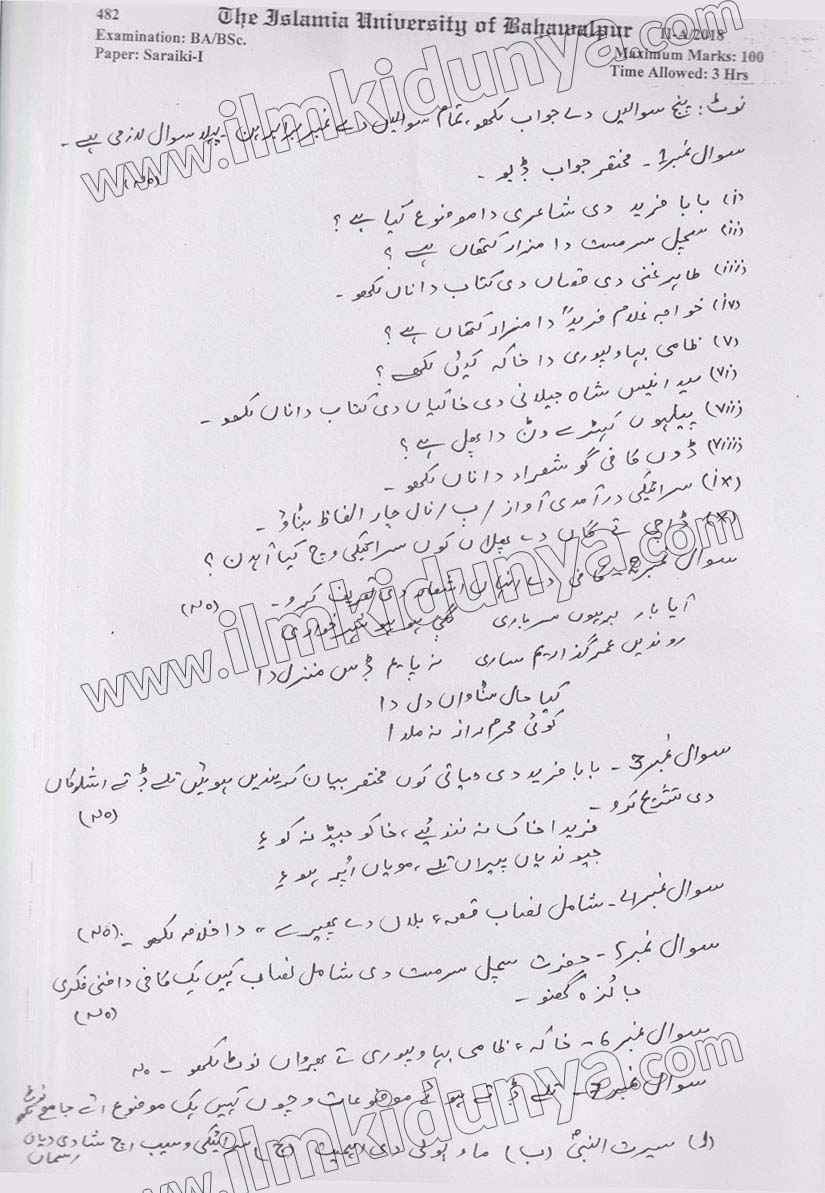 482
The Islamia University of Bahawalpur
II-A/2018
Examination: BA/BSc.
Maximum Marks: 100
Paper: Saraiki-I
Time Allowed: 3 Hrs
نوٹ: پنج سوالیں دے جواب لکھو، تمام سوالیں دے نمبر برابر ہن۔ پہلا سوال لازمی ہے۔
سوال نمبر 1۔ مختقر جواب ڈیو۔ (۲۰)
(i) بابا فرید دی شاعری دا موضوع کیا ہے؟
(ii) سچل سرمست دا مزار کتھاں ہے؟
(iii) طاہر غنی دی قصیاں دی کتاب دا ناں لکھو۔
(iv) خواجہ غلام فریدؒ دا مزار کتھاں ہے؟
(v) ظامی بہاولپوری دا خاکہ کیں لکھے؟
(vi) سید انیس شاہ جیلانی دی خاکیاں دی کتاب دا ناں لکھو۔
(vii) پیلہوں کیہڑے وݨ دا پھل ہے؟
(viii) ڈوں کافی گو شعراء دا ناں لکھو۔
(ix) سرائیکی درآمدی آواز /ب/ نال چار الفاظ بݨاؤ۔
(x) ڈاچی تے گاں دے پہلاں کوں سرائیکی وچ کیا آہدن؟
سوال نمبر 2۔ کافی دے انہاں اشعار دی تعریف کرو۔ (۲۰)
آیا بار برہوں سر باری
روندیں عمر گذاریم ساری نہ پایم ڈس منزل دا
کیا حال سݨاواں دل دا
کوئی محرم راز نہ ملدا
سوال نمبر 3۔ بابا فرید دی حیاتی کوں مختقر بیان کریندیں ہوئیں تلے ڈتے اشلوکاں
دی تشریح کرو۔ (۲۰)
فریدا خاک نہ نندئیے، خاکو جیڈ نہ کوءِ
جیوندیاں پیراں تلے، مویاں اُپر ہوءِ
سوال نمبر 4۔ شامل نصاب قصہ ،، بلاں دے پھیرے ،، دا خلاصہ لکھو۔ (۲۰)
سوال نمبر 5۔ حضرت سچل سرمست دی شامل نصاب کہیں ہک کافی دا فنی فکری
جائزہ گھنو۔ (۲۰)
سوال نمبر 6۔ خاکہ ،، ظامی بہاولپوری تے بھرواں نوٹ لکھو۔ ۲۰
سوال نمبر 7۔ تلے ڈتے ہوئے موضوعات وچوں کہیں ہک موضوع اتے جامع نوٹ لکھو
(ا) سیرت النبیؐ (ب) ماء ٻولی دی اہمیت (ج) سرائیکی وسیب اچ شادی دیاں رسماں
www.ilmkidunya.com
www.ilmkidunya.com
www.ilmkidunya.com
www.ilmkidunya.com